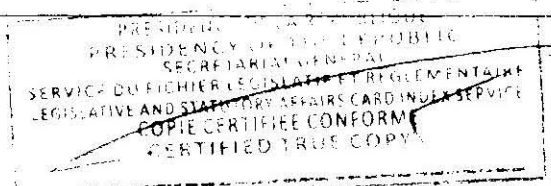 PRESIDENCY OF THE REPUBLIC
SECRETARIAT GENERAL
SERVICE DU FICHIER LEGISLATIF ET REGLEMENTAIRE
LEGISLATIVE AND STATUTORY AFFAIRS CARD INDEX SERVICE
COPIE CERTIFIEE CONFORME
CERTIFIED TRUE COPY